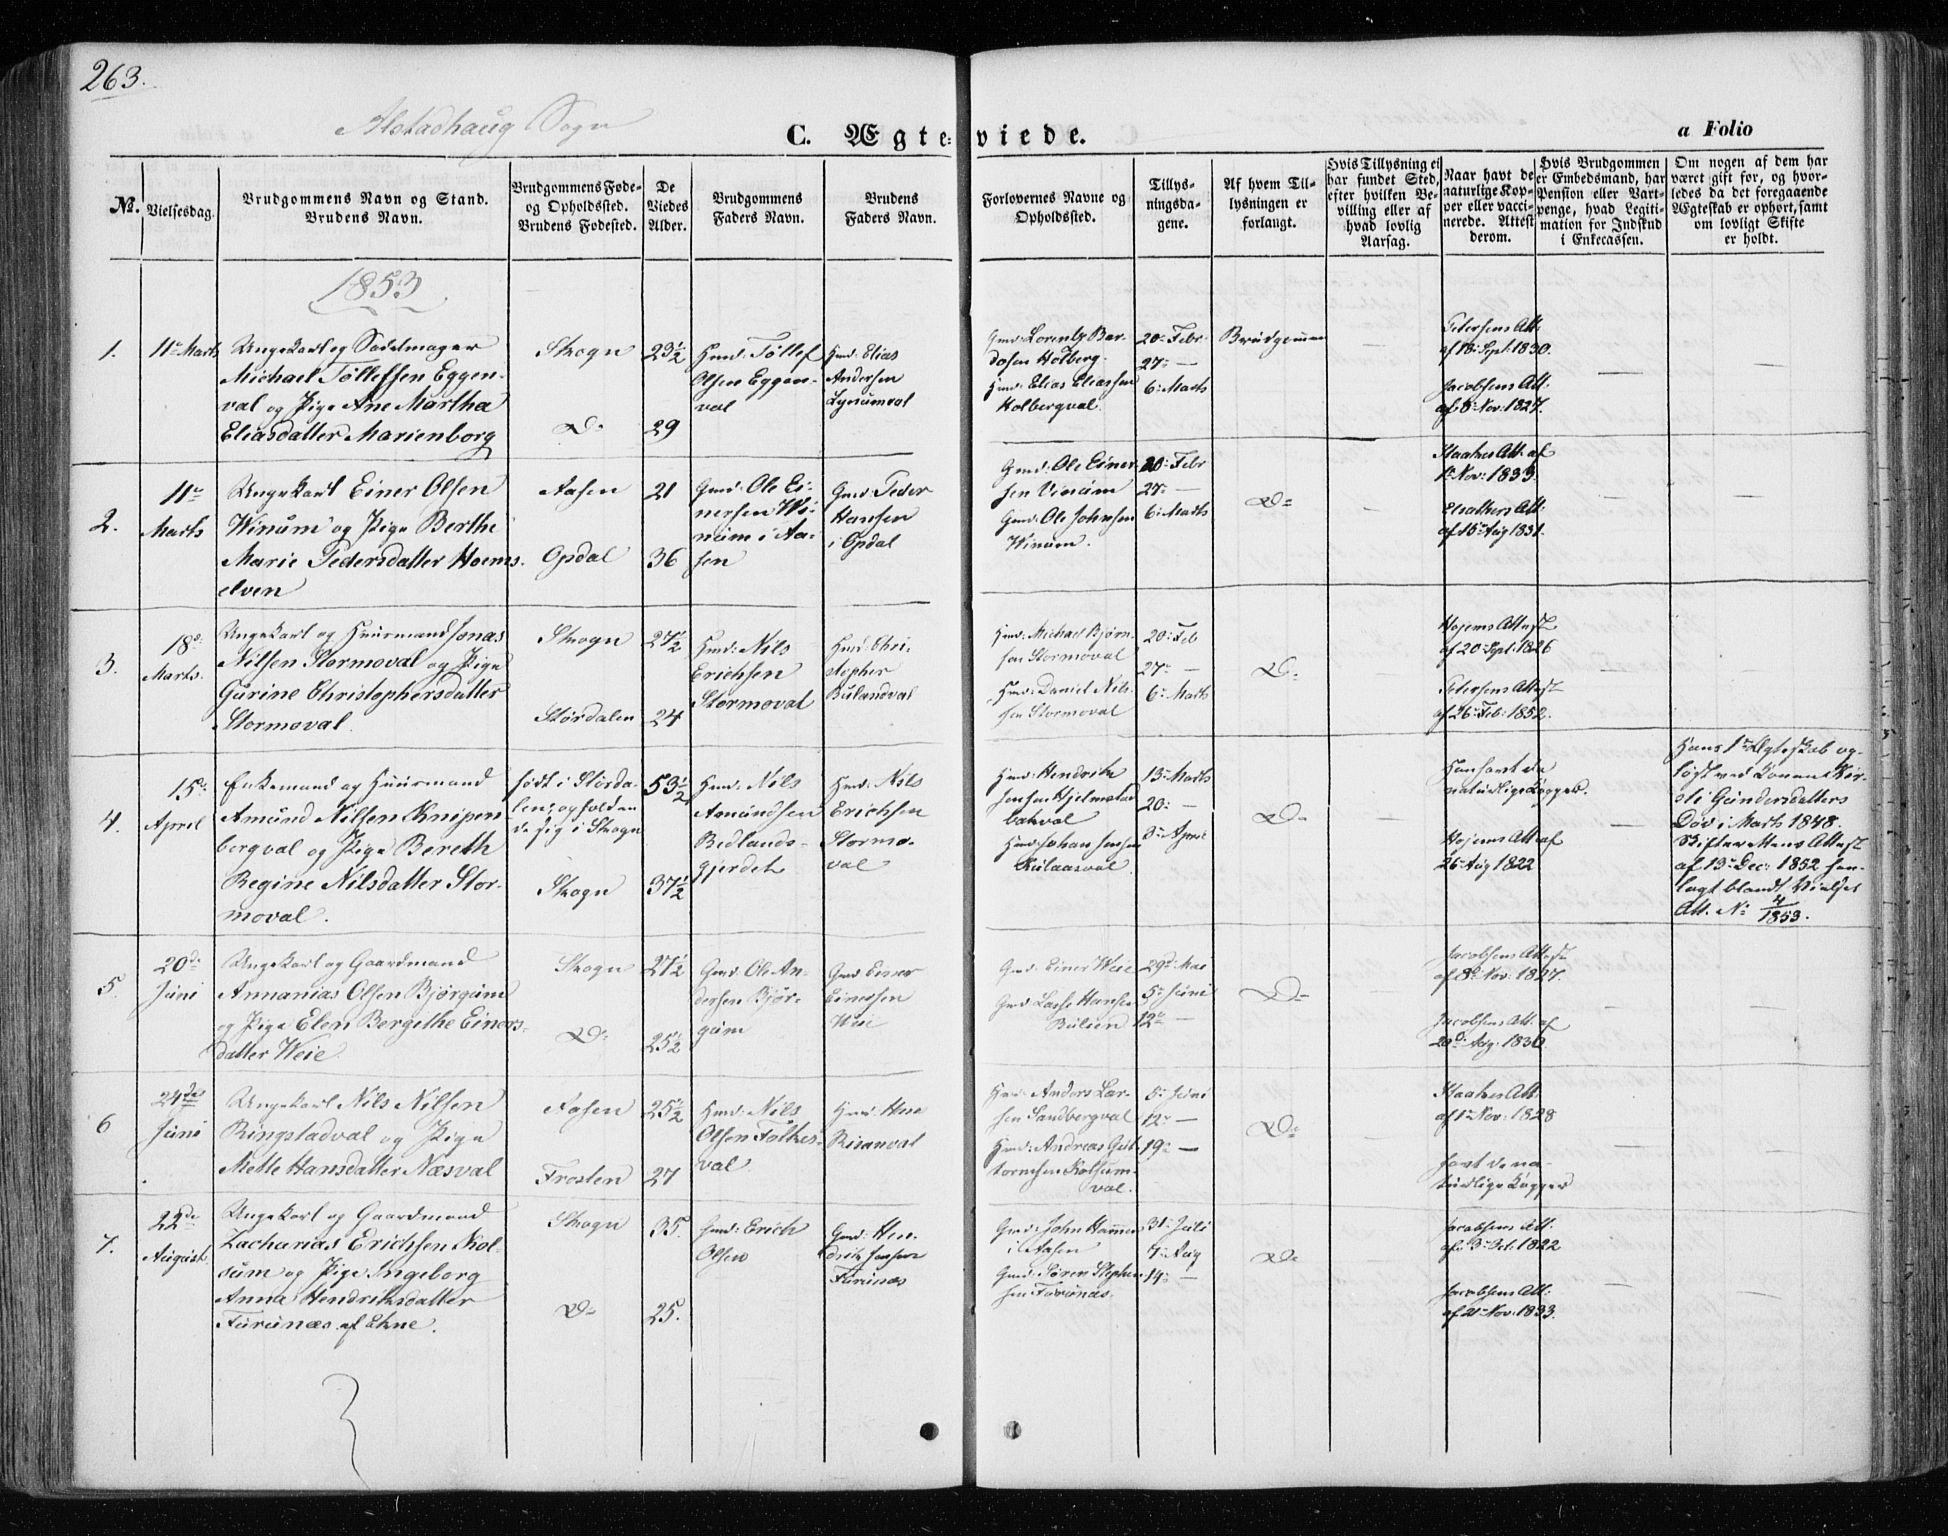 263.
Alstadhaug Sogn
C. Ægteviede.
a Folio
No.
Vielsesdag.
Brudgommens Navn og Stand.
Brudens Navn.
Brudgommens Føde-
og Opholdssted.
Brudens Fødested.
De
Viedes
Alder.
Brudgommens
Faders Navn.
Brudens
Faders Navn.
Forlovernes Navne og
Opholdssted.
Tillys-
ningsda-
gene.
Af hvem Til-
lysningen er
forlangt.
Hvis Tillysning ei
har fundet Sted,
efter hvilken Be-
villing eller af
hvad lovlig
Aarsag.
Naar havt de
naturlige Kop-
per eller vacci-
nerede. Attest
derom.
Hvis Brudgommen
er Embedsmand, har
Pension eller Vart-
penge, hvad Legiti-
mation for Indskud
i Enkecassen.
Om nogen af dem har
været gift før, og hvor-
ledes da det foregaaende
Ægteskab er ophørt, samt
om lovligt Skifte
er holdt.
1853
1.
11te Marts
Ungekarl og Sadelmager
Michael Tølleffsen Eggen-
val og Pige Ane Martha
Eliasdatter Marienborg
Skogn
Do
23½
29
Hmd: Tøllef
Olsen Eggen-
val
Hmd: Elias
Andersen
Gmd: Lorentz Bar-
dosen Holberg.
Hmd: Elias Eliassen
Kolbergval.
20 Febr.
27 —
6 Marts
Brudgommen
Petersens Att.
af 18 Sept: 1830.
Jacobsens Att:
af 8 Nov: 1827.
2.
11te
Marts
Ungekarl Einer Olsen
Winum og Pige Berthe
Marie Pedersdatter Hoems-
elven
Aasen
Opdal
21
36
Gmd: Ole Ei-
nersen Wi-
num i Aa-
sen
Gmd: Peder
Hansen
i Opdal
Gmd: Ole Einer-
sen Vinum
Gmd: Ole Johnsen
Winum.
20 Febr
27 —
6 Marts
Do
Staahes Att. af
1 Nov: 1833.
Att:
af 15 Aug 1831.
3.
18de
Marts.
Ungekarl og Huusmand Jonas
Nilsen Stormoval og Pige
Gurine Christophersdatter
Stormoval.
Skogn
Størdalen
27½
24
Hmd: Nils
Erichsen
Stormoval
Hmd: Chri-
stopher
Bulandval
Hmd: Michael Bjørn-
sen Stormoval
Hmd: Daniel Nils-
sen Stormoval
20 Feb
27 —
6 Marts
Do
Hojems Attest
af 20 Sept: 1826
Petersens Attest
af 26 Feb: 1852.
4.
15de
April
Enkemand og Huusmand
Amund Nilsen Knipen-
bergval og Pige Bereth
Regine Nilsdatter Stor-
moval.
født i Størda-
len, opholden-
de sig i Skogn
Skogn
53½
37½
Hmd: Nils
Amundsen
Bedlands-
gjerdet
Hmd: Nils
Erichsen
Stormo-
val
Hmd: Hendrik
Jensen Hjelmstad
bakval
Hmd: Johan Jensen
13 Marts
20 —
3 April
Do
Han havt de
naturlige Kopper.
Hojems Att af
26 Aug 1822
Hans 1ste Ægteskab op-
løst ved Konen Kir-
sti Gundersdatters
Død i Marts 1848.
Skifterettens Attest
af 13 Dec: 1852 hen-
lagt blandt Vielses
Att. No 4/1853.
5.
20de
Juni
Ungekarl og Gaardmand
Annanias Olsen Bjørgum
og Pige Elen Bergithe Einers-
datter Weie.
Skogn
Do
27½
25½
Gmd: Ole An-
dersen Bjør-
gum
Gmd: Einer
Einersen
Weie
Gmd: Einer Weie
Gmd Lasse Hansen
Bulien
29 Mai
5 Juni
12 —
Do
Jacobsens Attest
af 8 Nov: 1827.
Jacobsens Att. af
20de Aug: 1830.
6
24de
Juni
Ungekarl Nils Nilsen
Ringstadval og Pige
Mette Hansdatter Næsval
Aasen
Frosten
25½
27
Hmd: Nils
Olsen Folkes-
val
Hmd: Hans
Risanval
Hmd: Anders Lar-
sen Sandbergval
Hmd: Andreas Gut-
tormsen Kolsum-
val.
5 Juni
12 —
19 —
Do
Staahes Att:
af 1 Nov: 1828
havt de na-
turlige Kopper
7.
22de
August
Ungekarl og Gaardmand
Zacharias Erichsen Kol-
sum og Pige Ingeborg
Anna Hendriksdatter
Furunæs af Ekne.
Skogn
Do
35.
25.
Gmd: Erich
Olsen
Gmd: Hen-
drik Jensen
Furunæs
Gmd: John Hammer
i Aasen
Gmd: Søren Stephen-
sen Furunæs.
31 Juli
7 Aug
14 —
Do
Jacobsens Att:
af 3 Oct: 1822
Jacobsens Att:
af 21 Nov: 1833.